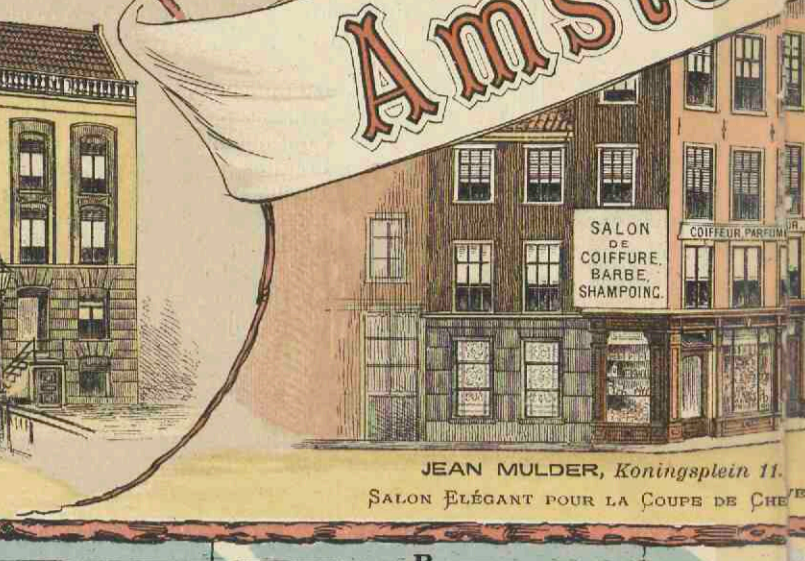 Amste
SALON
DE
COIFFURE,
BARBE,
SHAMPOING.
COIFFEUR, PARFUM
JEAN MULDER, Koningsplein 11.
SALON ELÉGANT POUR LA COUPE DE CHE